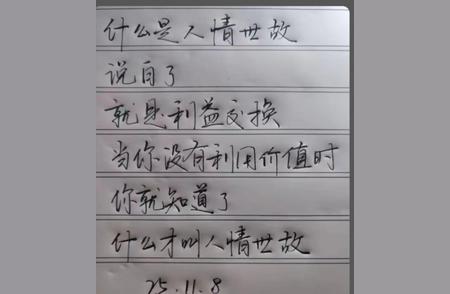 什么是人情世故
说白了
就是利益交换
当你没有利用价值时
你就知道了
什么才叫人情世故
25.11.8